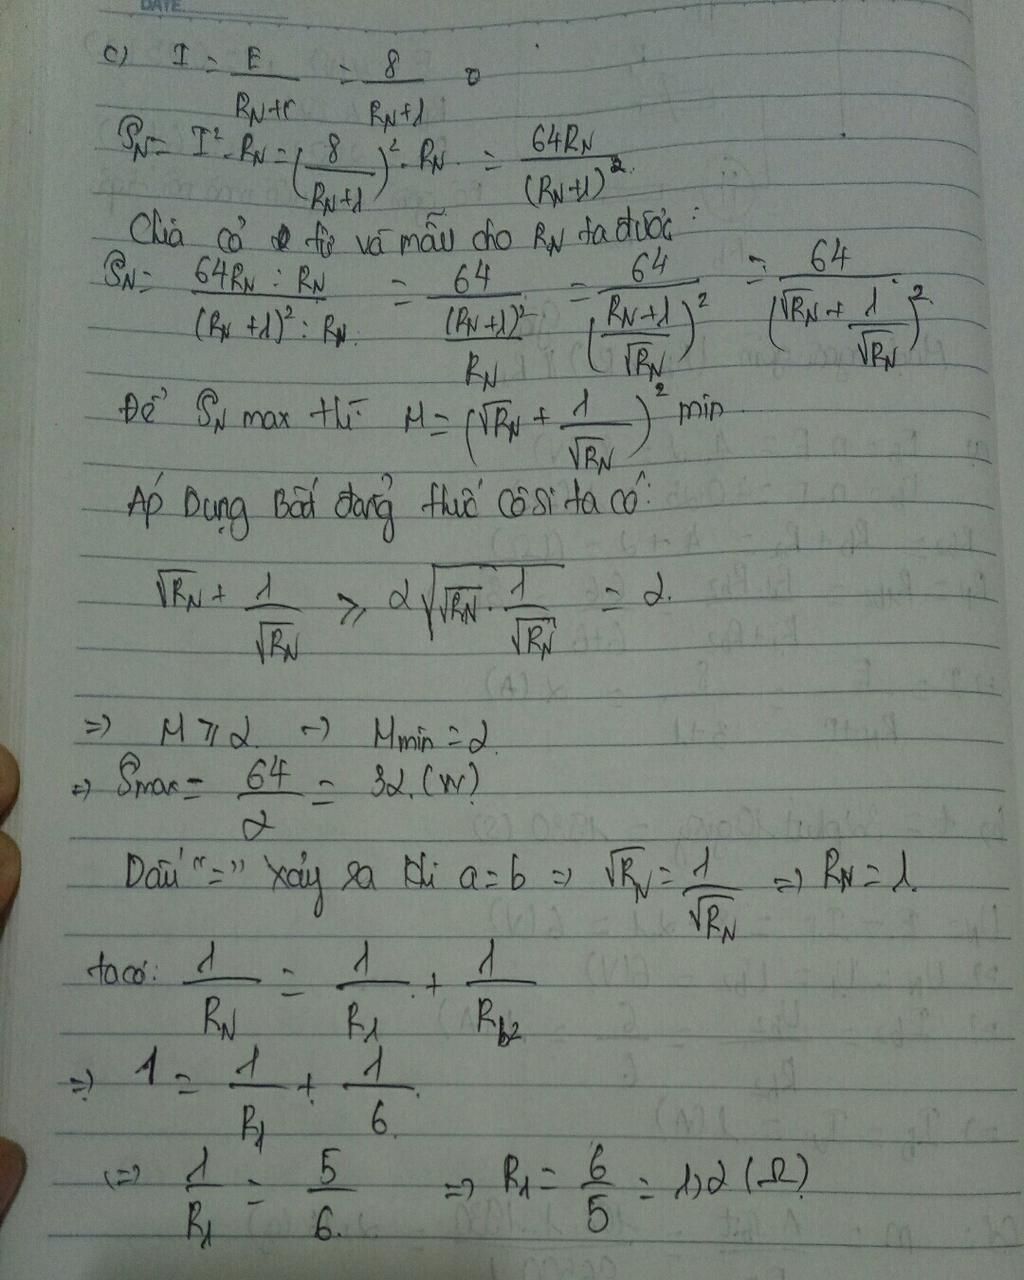 DATE
c) I = E/(R_N+r) = 8/(R_N+1)
P_N = I².R_N = (8/(R_N+1))².R_N = 64R_N/(R_N+1)²
Chia cả tử và mẫu cho R_N ta được:
P_N = (64R_N : R_N)/((R_N+1)² : R_N) = 64/((R_N+1)²/R_N) = 64/((R_N+1)/√R_N)² = 64/(√R_N + 1/√R_N)²
Để P_N max thì M = (√R_N + 1/√R_N)² min
Áp Dụng Bất đẳng thức Côsi ta có:
√R_N + 1/√R_N ≥ 2√(√R_N . 1/√R_N) = 2.
=> M ≥ 2. -> M min = 2.
=> P max = 64/2 = 32.(W)
Dấu "=" xảy ra khi a = b => √R_N = 1/√R_N => R_N = 1.
ta có: 1/R_N = 1/R_1 + 1/R_b2
=> 1 = 1/R_1 + 1/6.
<=> 1/R_1 = 5/6. => R_1 = 6/5 = 1,2 (Ω)